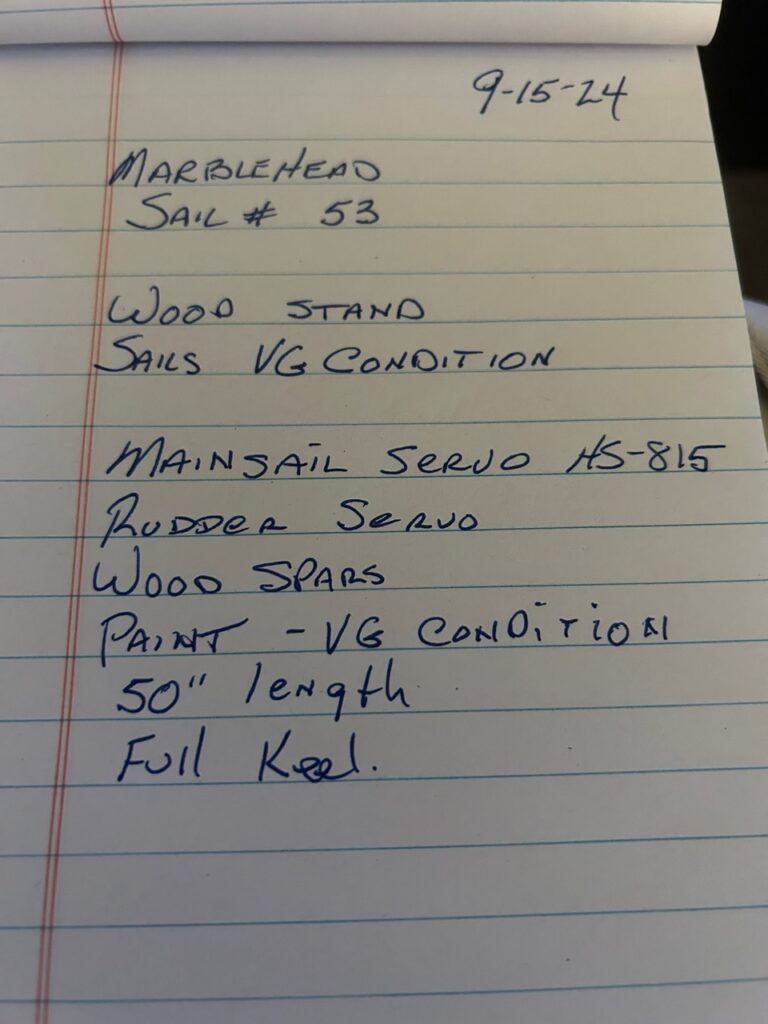 9-15-24
MARBLEHEAD
SAIL # 53
WOOD STAND
SAILS VG CONDITION
MAINSAIL SERVO HS-815
RUDDER SERVO
WOOD SPARS
PAINT - VG CONDITION
50" length
Full Keel.